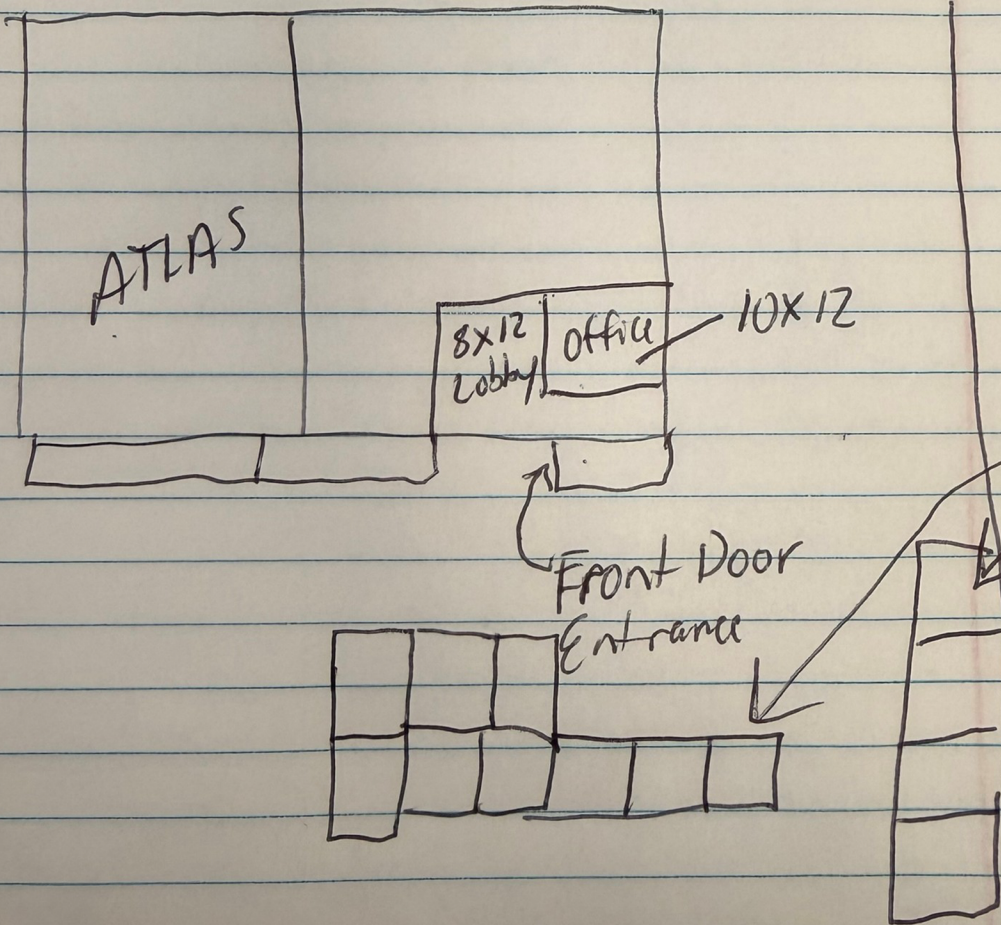 ATLAS
8x12
Lobby
Office
10x12
Front Door
Entrance